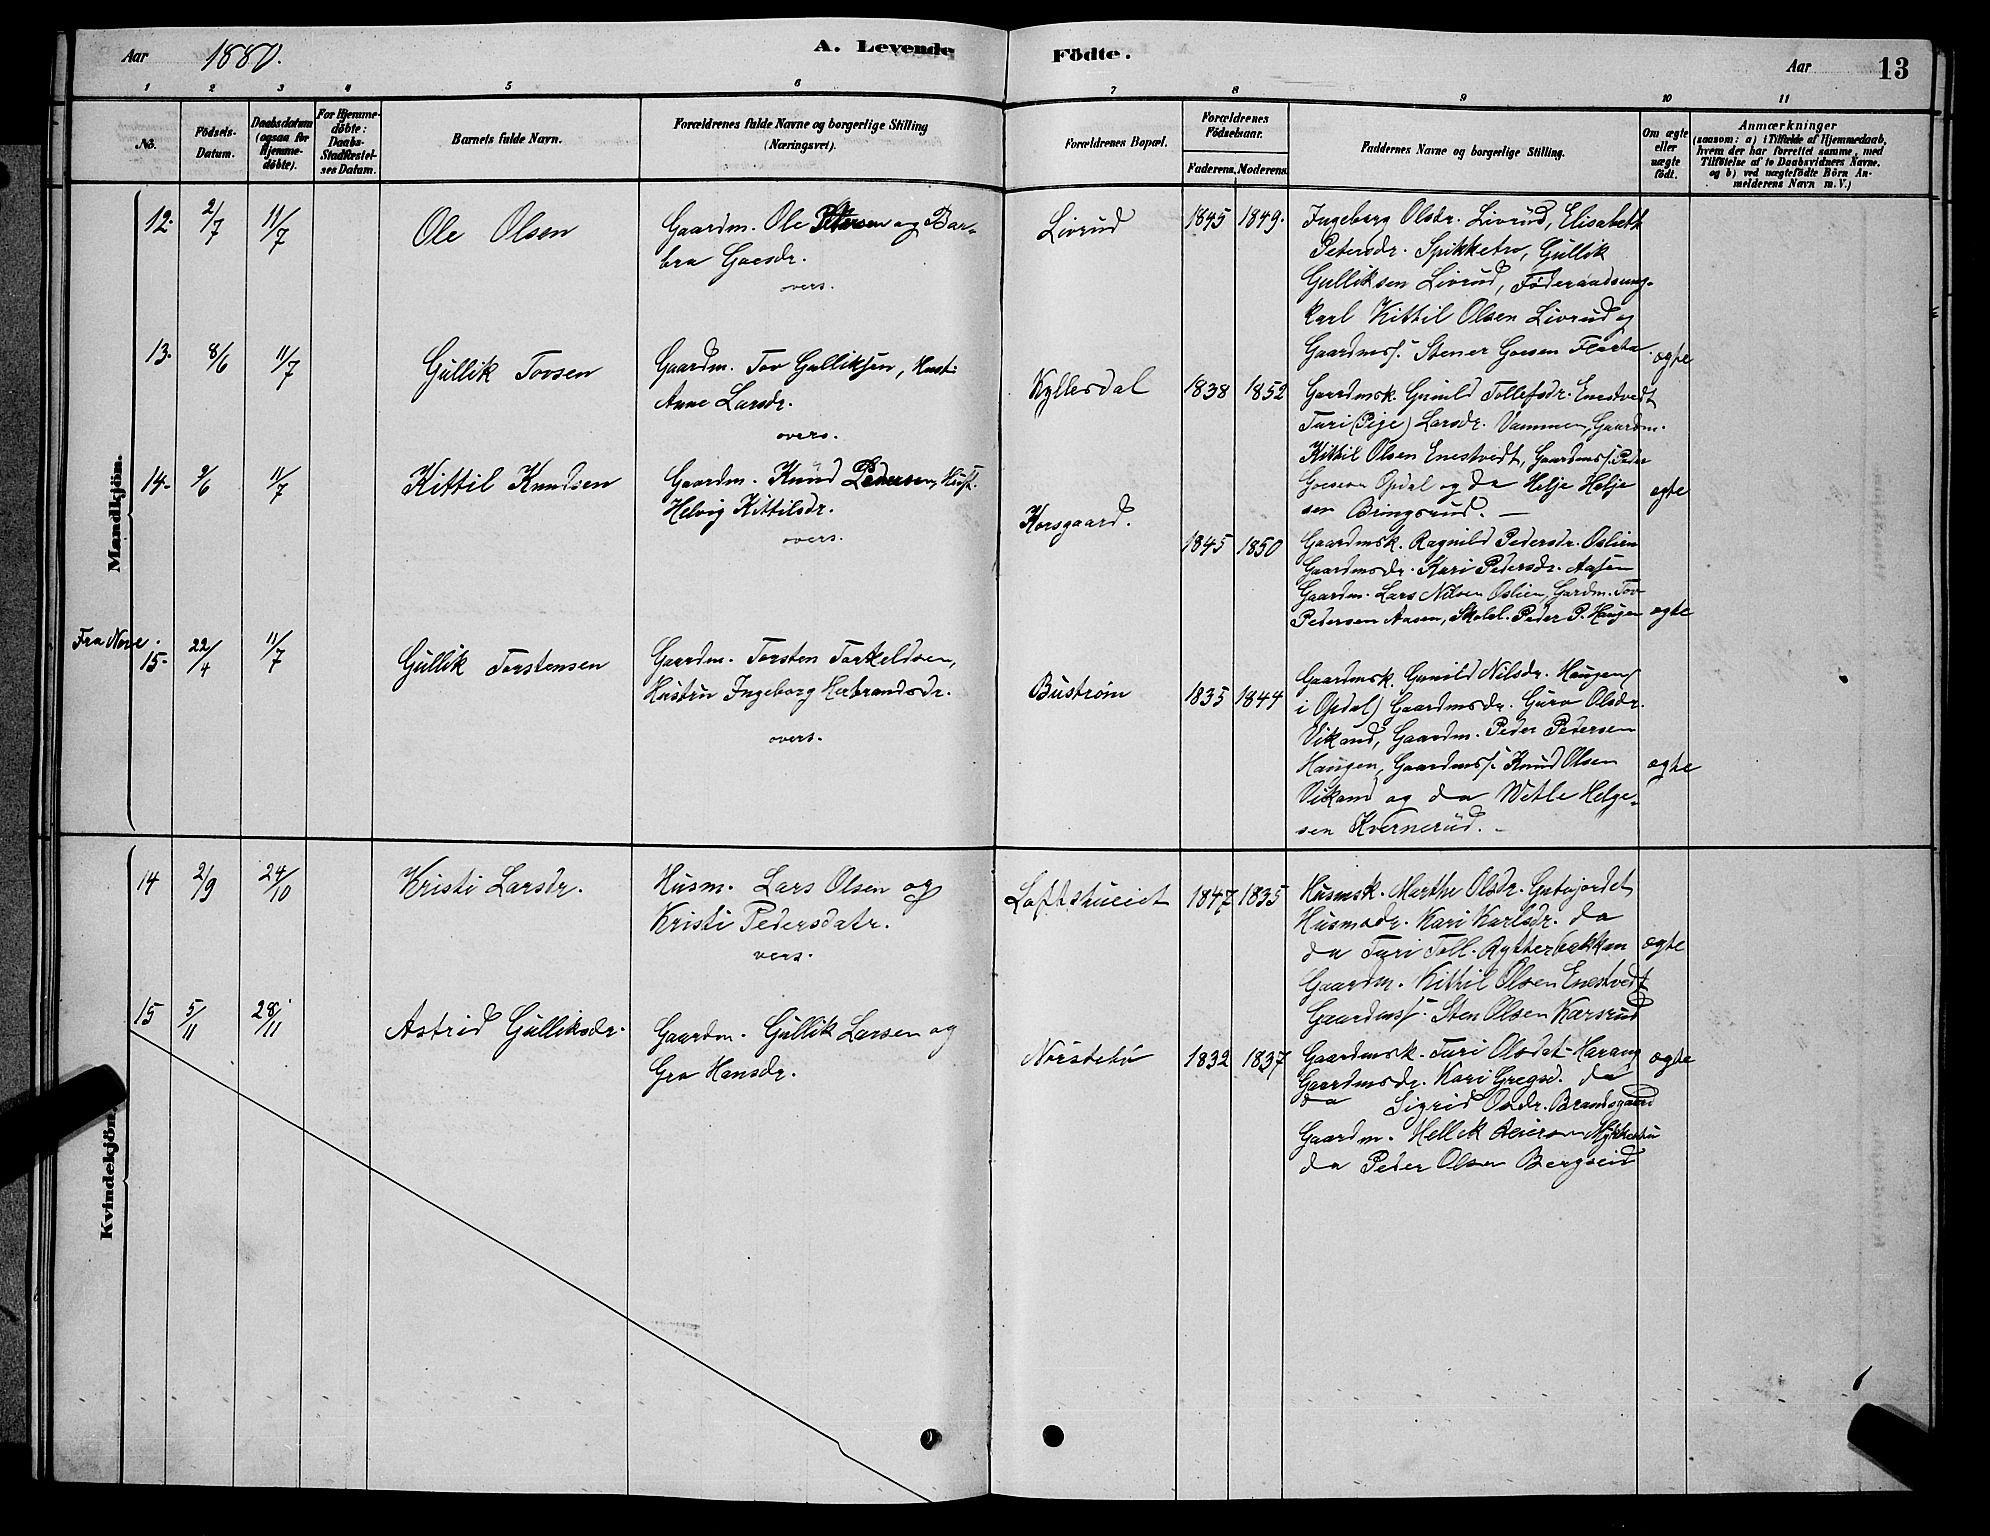 Aar 1880. A. Levende Födte. Aar 13
1 2 3 4 5 6 7 8 9 10 11
No.
Födsels-Datum.
Daabsdatum (ogsaa for Hjemme-döbte).
For Hjemme-döbte: Daabs-Stadfæstel-ses Datum.
Barnets fulde Navn.
Forældrenes fulde Navne og borgerlige Stilling (Næringsvei).
Forældrenes Bopæl.
Forældrenes Födselsaar.
Faderens. Moderens.
Faddernes Navne og borgerlige Stilling.
Om ægte eller uægte födt.
Anmærkninger
(saasom: a) i Tilfælde af Hjemmedaab,
hvem der har forrettet samme, med
Tilföielse af to Daabsvidners Navne,
og b) ved uægtefödte Börn An-
melderens Navn m. V.)
Mandkjön.
12. 2/7 11/7 Ole Olsen
Gaardm. Ole Petersen og Bar-
bra Goesdr.
overs.
Livrud 1845 1849.
Ingeborg Olsdr. Livrud, Elisabeth
Petersdr. Spikketro, Gullik
Gulliksen Livrud, Föderaadsung-
karl Kittil Olsen Livrud og
Gaardmss. Stener Goesen Flaata ægte
13. 8/6 11/7 Gullik Tovsen
Gaardm. Tov Gulliksen, Hust.
Anne Larsdr.
overs.
Kyllesdal 1838 1852
Gaardmsk. Gunild Tollefsdr. Enestvedt
Turi (Pige) Larsdr. Vammen, Gaardm.
Kittil Olsen Enestvedt, Gaardmss. Peder
Goesen Opdal og do Helje Helje
sen Bringsrud. — ægte
14. 2/6 11/7 Kittil Knudsen
Gaardm. Knud Pedersen, Hust.
Helvig Kittilsdr.
overs.
Korsgaard. 1845 1850
Gaardmsk. Ragnild Pedersdr. Oslien
Gaardmsdr. Kari Pedersdr. Aasen
Gaardm. Lars Nilsen Oslien, Gardm. Tov
Pedersen Aasen, Skolel. Peder P. Haugen ægte
Fra Nore.
15. 22/4 11/7 Gullik Torstensen
Gaardm. Torsten Torkeldsen,
Hustru Ingeborg Herbrandsdr.
overs.
Buström 1835 1844
Gaardmsk. Gunild Nilsdr. Haugen
i Opdal) Gaardmsdr. Guro Olsdr.
Vikand, Gaardm. Peder Pedersen
Haugen, Gaardmss. Knud Olsen
Vikand og do Wetle Helge-
sen Kvernerud. — ægte
Kvindekjön.
14 2/9 24/10 Kristi Larsdr.
Husm. Lars Olsen og
Kristi Pedersdatr.
vers.
Loftstueiet 1847 1835
Husmsk. Marthe Olsdr. Gstujordet
Husmsdr. Kari Karlsdr. do
do Turi Toll. Rytterbakken ægte
Gaardm. Kittil Olsen Enestvedt
Gaardmss. Sten Olsen Kærsrud
15 5/11 28/11 Astrid Gulliksdr.
Gaardm. Gullik Larsen og
Gro Hansdr.
Norstebø 1832 1837
Gaardmsk. Turi Olsdat. Harang ægte
Gaardmsdr. Kari Gregsd. do
do Sigrid Osdr. Brandsgaard
Gaardm. Hellik Reiersen Mykkestu
do Peder Olsen Bergseid